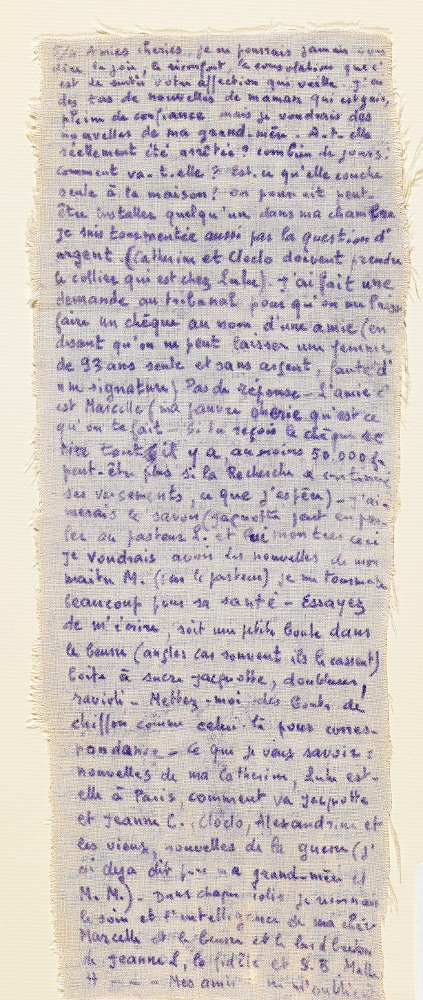 Amies chéries, je ne pourrais jamais vous
dire la joie, le réconfort, la consolation que c'
est de sentir votre affection qui veille. J'ai eu
des tas de nouvelles de maman qui est gaie,
pleine de confiance mais je voudrais des
nouvelles de ma grand-mère. A-t-elle
réellement été arrêtée? combien de jours?
comment va-t-elle? Est-ce qu'elle couche
seule à la maison? on pourrait peut-
être installer quelqu'un dans ma chambre
je suis tourmentée aussi par la question d'
argent (Catherine et Cloclo doivent prendre
le collier qui est chez Lulu). J'ai fait une
demande au tribunal pour qu'on me laisse
faire un chèque au nom d'une amie (en
disant qu'on ne peut laisser une femme
de 93 ans seule et sans argent, faute d'
une signature) Pas de réponse - L'amie c'
est Marcelle (ma pauvre chérie qu'est ce
qu'on te fait - Si tu reçois le chèque
tire tout (il y a au moins 50.000 f
peut-être plus si la Recherche a continué
ses versements, ce que j'espère) - J'ai-
merais le savoir (Jacquotte peut en par-
ler au pasteur L. et lui montrer ceci
je voudrais avoir des nouvelles de mon
maître M. (par le pasteur) je me tourmente
beaucoup pour sa santé - Essayez
de m'écrire, soit une petite boule dans
le beurre (angles car souvent ils le cassent)
boîte à sucre Jacquotte, doublures,
ravioli - Mettez-moi des bouts de
chiffon comme celui-là pour corres-
pondance - Ce que je veux savoir :
nouvelles de ma Catherine, Lulu est-
elle à Paris, comment va Jacquotte
et Jeanne C., Cloclo, Alexandrine et
les vieux, nouvelles de la guerre (j'
ai déjà dit pour ma grand-mère et
M. M.) - Dans chaque colis je reconnais
le soin et l'intelligence de ma chère
Marcelle et le beurre et le lard breton
de Jeanne L, la fidèle et S.B.
Mes amies